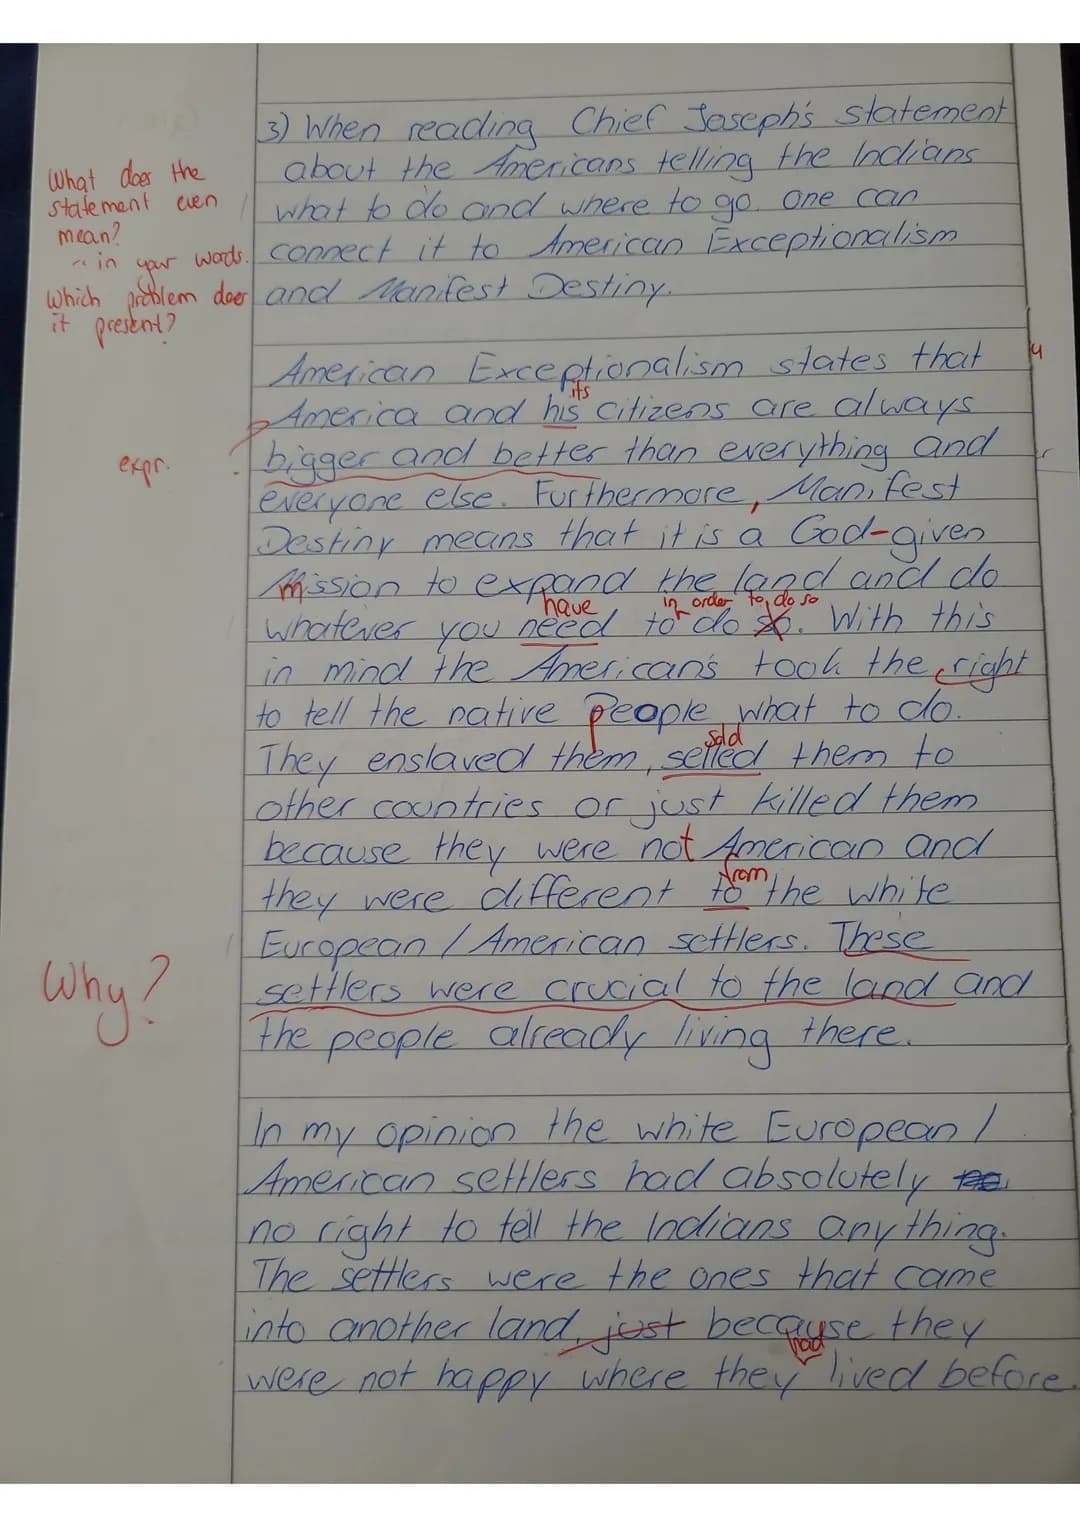 3) When reading Chief Joseph's statement
about the Americans telling the Indians
What does the
statement even
mean?
what to do and where to go. one can
in your words.
connect it to American Exceptionalism
Which problem does
it present?
and Manifest Destiny.
American Exceptionalism states that
its
America and his citizens are always
expr. ?
bigger and better than everything and
everyone else. Furthermore, Manifest
Destiny means that it is a God-given
mission to expand the land and do
have in order to do so
whatever you need to do so. With this
in mind the American's took the right
to tell the native people what to do.
sold
They enslaved them, selled them to
other countries or just killed them
because they were not American and
from
they were different to the white
European / American settlers. These
Why?
settlers were crucial to the land and
the people already living there.
In my opinion the white European /
American settlers had absolutely
no right to tell the Indians anything.
The settlers were the ones that came
into another land, just because they
had
were not happy where they lived before.